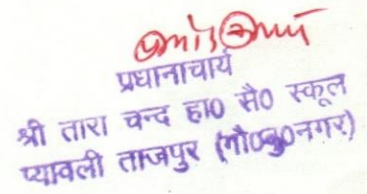 प्रधानाचार्य
श्री तारा चन्द हा0 सै0 स्कूल
प्यावली ताजपुर (गौ0बु0नगर)